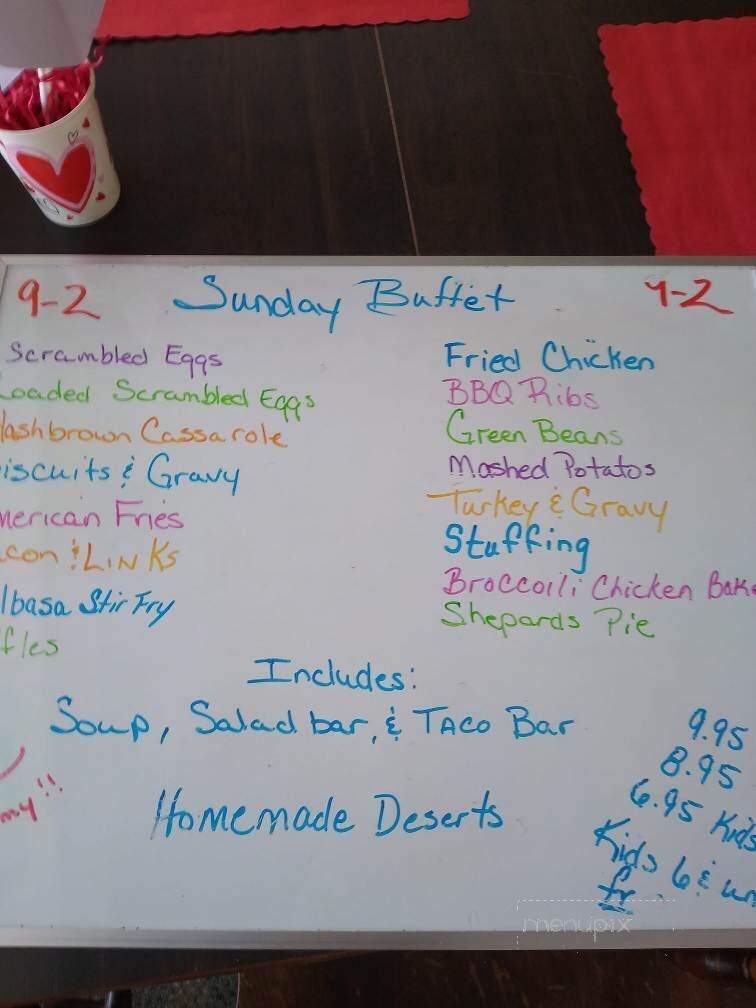 9-2 Sunday Buffet 9-2
Scrambled Eggs
Loaded Scrambled Eggs
Hashbrown Cassarole
iscuits & Gravy
merican Fries
con & LINKS
lbasa Stir Fry
ffles
Fried Chicken
BBQ Ribs
Green Beans
Mashed Potatos
Turkey & Gravy
Stuffing
Broccoili Chicken Bake
Shepards Pie
Includes:
Soup, Salad bar, & TACO Bar
Homemade Deserts
my!!
9.95
8.95
6.95 Kids
Kids 6 & un
fr
menupix